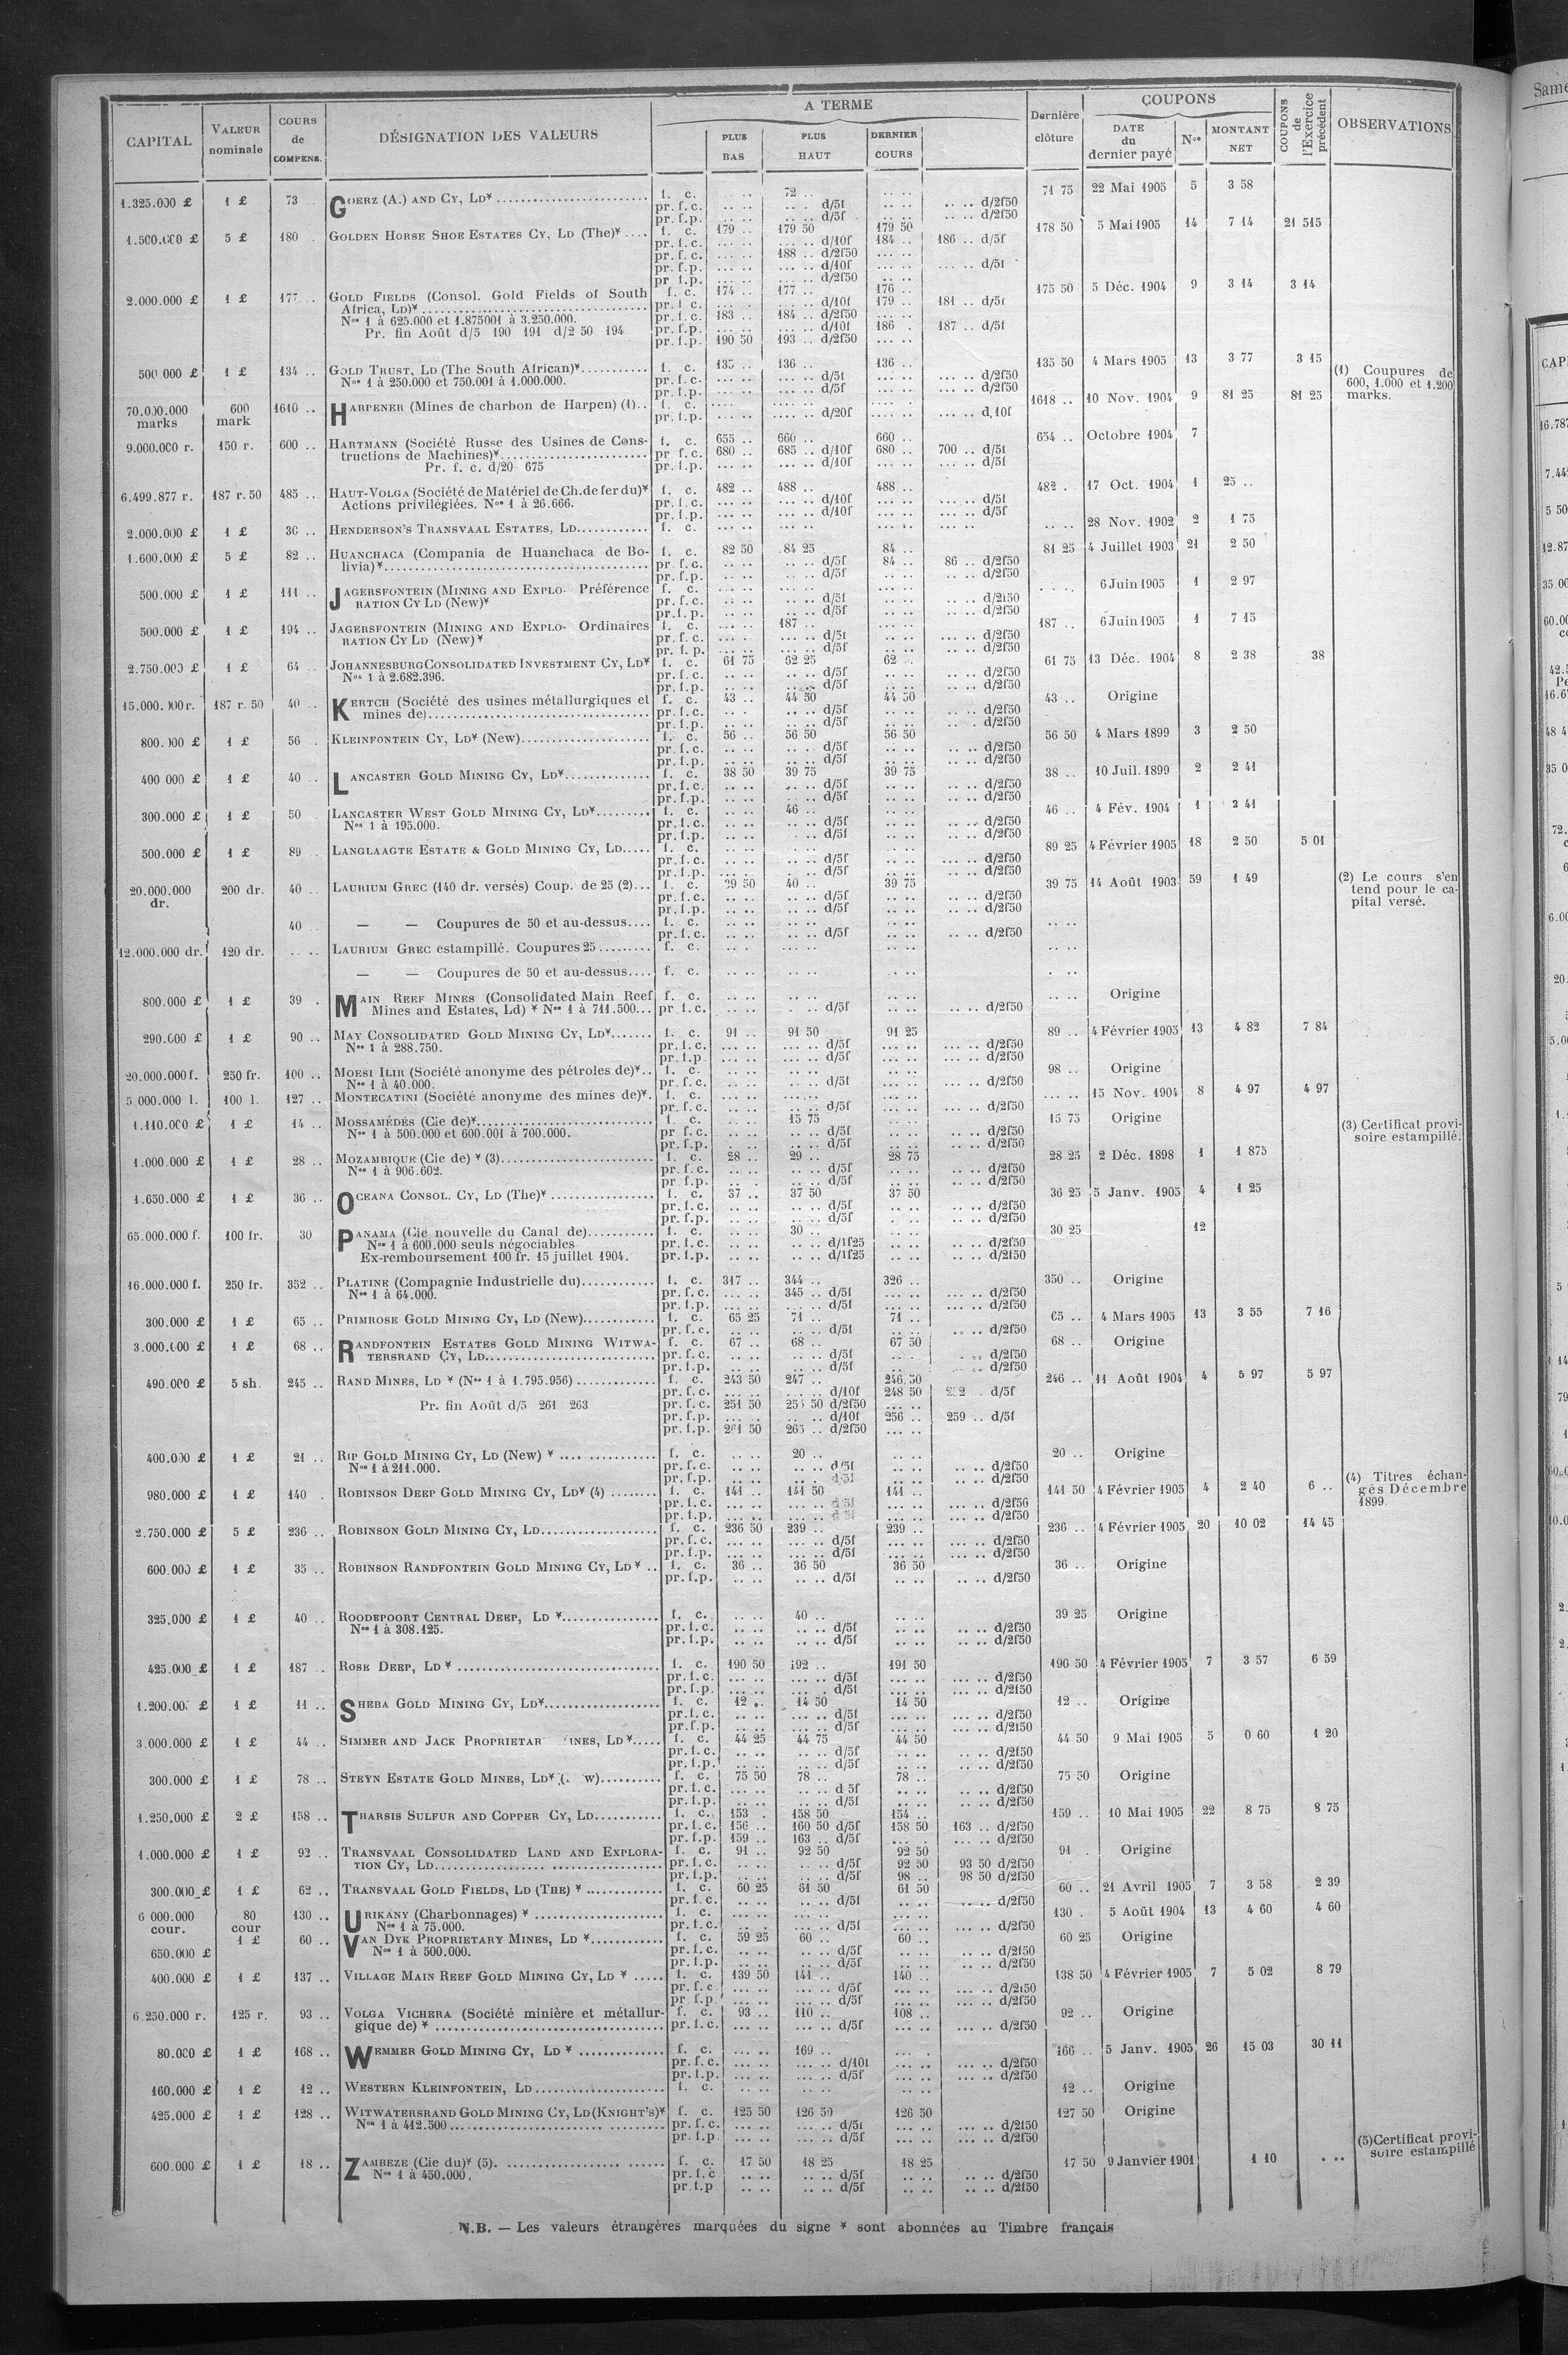 CAPITAL | VALEUR nominale | COURS de COMPENS. | DÉSIGNATION DES VALEURS | A TERME | PLUS BAS | PLUS HAUT | DERNIER COURS | Dernière clôture | COUPONS | DATE du dernier payé | Nos | MONTANT NET | COUPONS de l'Exercice précédent | OBSERVATIONS
1.325.000 £ | 1 £ | 73 | GOERZ (A.) AND CY, LD* | f. c. | .. .. | 72 .. | .. .. | 71 75 | 22 Mai 1905 | 5 | 3 58
pr. f. c. | .. .. | .. .. d/5f | .. .. | .. .. d/2f50
pr. f. p. | .. .. | .. .. d/5f | .. .. | .. .. d/2f50
1.500.000 £ | 5 £ | 180 . | GOLDEN HORSE SHOE ESTATES CY, LD (The)* | f. c. | 179 .. | 179 50 | 179 50 | 178 50 | 5 Mai 1905 | 14 | 7 14 | 21 515
pr. f. c. | ... .. | ... .. d/10f | 184 .. | 186 .. d/5f
pr. f. c. | ... .. | 188 .. d/2f50 | ... ..
pr. f. p. | ... .. | ... .. d/10f | ... .. | ... .. d/5f
pr. f. p. | ... .. | ... .. d/2f50 | ... ..
2.000.000 £ | 1 £ | 177 .. | GOLD FIELDS (Consol. Gold Fields of South | f. c. | 174 .. | 177 .. | 176 .. | 175 50 | 5 Déc. 1904 | 9 | 3 14 | 3 14
Africa, LD)* | pr. f. c. | ... .. | ... .. d/10f | 179 .. | 181 .. d/5f
Nos 1 à 625.000 et 1.875001 à 3.250.000. | pr. f. c. | 183 .. | 184 .. d/2f50 | ... ..
Pr. fin Août d/5 190 191 d/2 50 194 | pr. f. p. | ... .. | ... .. d/10f | 186 . | 187 .. d/5f
pr. f. p. | 190 50 | 193 .. d/2f50 | ... ..
500 000 £ | 1 £ | 134 .. | GOLD TRUST, LD (The South African)* | f. c. | 135 .. | 136 .. | 136 .. | 135 50 | 4 Mars 1905 | 13 | 3 77 | 3 15
Nos 1 à 250.000 et 750.001 à 1.000.000. | pr. f. c. | ... .. | ... .. d/5f | ... .. | ... .. d/2f50 | (1) Coupures de 600, 1.000 et 1.200 marks.
pr. f. p. | ... .. | ... .. d/5f | ... .. | ... .. d/2f50
70.000.000 marks | 600 mark | 1610 .. | HARPENER (Mines de charbon de Harpen) (1) | f. c. | .... .. | .... .. | .... .. | 1618 .. | 10 Nov. 1904 | 9 | 81 25 | 81 25
pr. f. p. | .... .. | .... .. d/20f | .... .. | .... .. d/10f
9.000.000 r. | 150 r. | 600 .. | HARTMANN (Société Russe des Usines de Cons- | f. c. | 655 .. | 660 .. | 660 .. | 654 .. | Octobre 1904 | 7
tructions de Machines)* | pr. f. c. | 680 .. | 685 .. d/10f | 680 .. | 700 .. d/5f
Pr. f. c. d/20 675 | pr. f. p. | ... .. | ... .. d/10f | ... .. | ... .. d/5f
6.499.877 r. | 187 r. 50 | 485 .. | HAUT-VOLGA (Société de Matériel de Ch. de fer du)* | f. c. | 482 .. | 488 .. | 488 .. | 482 . | 17 Oct. 1904 | 1 | 25 ..
Actions privilégiées. Nos 1 à 26.666. | pr. f. c. | ... .. | ... .. d/10f | ... .. | ... .. d/5f
pr. f. p. | ... .. | ... .. d/10f | ... .. | ... .. d/5f
2.000.000 £ | 1 £ | 36 .. | HENDERSON'S TRANSVAAL ESTATES, LD | f. c. | ... .. | ... .. | ... .. | .. .. | 28 Nov. 1902 | 2 | 1 75
1.600.000 £ | 5 £ | 82 .. | HUANCHACA (Compania de Huanchaca de Bo- | f. c. | 82 50 | 84 25 | 84 .. | 81 25 | 4 Juillet 1903 | 21 | 2 50
livia)* | pr. f. c. | .. .. | .. .. d/5f | 84 .. | 86 .. d/2f50
pr. f. p. | .. .. | .. .. d/5f | .. .. | .. .. d/2f50
500.000 £ | 1 £ | 111 .. | JAGERSFONTEIN (MINING AND EXPLO- Préférence | f. c. | ... .. | ... .. | ... .. | . . . . | 6 Juin 1905 | 1 | 2 97
RATION CY LD (New)* | pr. f. c. | ... .. | ... .. d/5f | ... .. | ... .. d/2f50
pr. f. p. | ... .. | ... .. d/5f | ... .. | ... .. d/2f50
500.000 £ | 1 £ | 194 .. | JAGERSFONTEIN (MINING AND EXPLO- Ordinaires | f. c. | ... .. | 187 .. | ... .. | 187 .. | 6 Juin 1905 | 1 | 7 15
RATION CY LD (New)* | pr. f. c. | ... .. | ... .. d/5f | ... .. | ... .. d/2f50
pr. f. p. | ... .. | ... .. d/5f | ... .. | ... .. d/2f50
2.750.000 £ | 1 £ | 64 .. | JOHANNESBURG CONSOLIDATED INVESTMENT CY, LD* | f. c. | 61 75 | 62 25 | 62 .. | 61 75 | 13 Déc. 1904 | 8 | 2 38 | 38
Nos 1 à 2.682.396. | pr. f. c. | .. .. | .. .. d/5f | .. .. | .. .. d/2f50
pr. f. p. | .. .. | .. .. d/5f | .. .. | .. .. d/2f50
15.000.000 r. | 187 r. 50 | 40 .. | KERTCH (Société des usines métallurgiques et | f. c. | 43 .. | 44 50 | 44 50 | 43 .. | Origine
mines de) | pr. f. c. | .. .. | .. .. d/5f | .. .. | .. .. d/2f50
pr. f. p. | .. .. | .. .. d/5f | .. .. | .. .. d/2f50
800.000 £ | 1 £ | 56 .. | KLEINFONTEIN CY, LD* (New) | f. c. | 56 .. | 56 50 | 56 50 | 56 50 | 4 Mars 1899 | 3 | 2 50
pr. f. c. | .. .. | .. .. d/5f | .. .. | .. .. d/2f50
pr. f. p. | .. .. | .. .. d/5f | .. .. | .. .. d/2f50
400 000 £ | 1 £ | 40 .. | LANCASTER GOLD MINING CY, LD* | f. c. | 38 50 | 39 75 | 39 75 | 38 .. | 10 Juil. 1899 | 2 | 2 41
pr. f. c. | .. .. | .. .. d/5f | .. .. | .. .. d/2f50
pr. f. p. | .. .. | .. .. d/5f | .. .. | .. .. d/2f50
300.000 £ | 1 £ | 50 . | LANCASTER WEST GOLD MINING CY, LD* | f. c. | .. .. | 46 .. | .. .. | 46 .. | 4 Fév. 1904 | 1 | 2 41
Nos 1 à 195.000. | pr. f. c. | .. .. | .. .. d/5f | .. .. | .. .. d/2f50
pr. f. p. | .. .. | .. .. d/5f | .. .. | .. .. d/2f50
500.000 £ | 1 £ | 89 . | LANGLAAGTE ESTATE & GOLD MINING CY, LD | f. c. | .. .. | .. .. | .. .. | 89 25 | 4 Février 1905 | 18 | 2 50 | 5 01
pr. f. c. | .. .. | .. .. d/5f | .. .. | ... .. d/2f50
pr. f. p. | .. .. | .. .. d/5f | .. .. | ... .. d/2f50
20.000.000 dr. | 200 dr. | 40 .. | LAURIUM GREC (140 dr. versés) Coup. de 25 (2) | f. c. | 39 50 | 40 .. | 39 75 | 39 75 | 14 Août 1903 | 59 | 1 49 | (2) Le cours s'entend pour le capital versé.
pr. f. c. | .. .. | .. .. d/5f | .. .. | .. .. d/2f50
pr. f. p. | .. .. | .. .. d/5f | .. .. | .. .. d/2f50
40 .. | — — Coupures de 50 et au-dessus | f. c. | .. .. | .. .. | .. .. | .. ..
pr. f. c. | .. .. | .. .. d/5f | .. .. | .. .. d/2f50
12.000.000 dr. | 120 dr. | .. .. | LAURIUM GREC estampillé. Coupures 25 | f. c. | .. .. | .. .. | .. .. | .. ..
— — Coupures de 50 et au-dessus | f. c. | .. .. | .. .. | .. .. | . ..
800.000 £ | 1 £ | 39 . | MAIN REEF MINES (Consolidated Main Reef | f. c. | .. .. | .. .. | .. .. | .. .. | Origine
Mines and Estates, Ld) * Nos 1 à 711.500 | pr. f. c. | .. .. | .. .. d/5f | .. .. | .. .. d/2f50
290.000 £ | 1 £ | 90 .. | MAY CONSOLIDATED GOLD MINING CY, LD* | f. c. | 91 .. | 91 50 | 91 25 | 89 .. | 4 Février 1905 | 13 | 4 82 | 7 84
Nos 1 à 288.750. | pr. f. c. | ... .. | ... .. d/5f | ... .. | ... .. d/2f50
pr. f. p. | ... .. | ... .. d/5f | ... .. | ... .. d/2f50
20.000.000 f. | 250 fr. | 100 .. | MOESI ILIR (Société anonyme des pétroles de)* | f. c. | .. .. | ... .. | ... .. | 98 .. | Origine
Nos 1 à 40.000. | pr. f. c. | .. .. | .. .. d/5f | ... .. | ... .. d/2f50
5.000.000 l. | 100 l. | 127 .. | MONTECATINI (Société anonyme des mines de)* | f. c. | ... .. | ... .. | ... .. | ... .. | 15 Nov. 1904 | 8 | 4 97 | 4 97
pr. f. c. | .. .. | .. .. d/5f | ... .. | ... .. d/2f50
1.110.000 £ | 1 £ | 14 .. | MOSSAMÉDÈS (Cie de)* | f. c. | .. .. | 15 75 | .. .. | 15 75 | Origine | (3) Certificat provisoire estampillé.
Nos 1 à 500.000 et 600.001 à 700.000. | pr. f. c. | .. .. | .. .. d/5f | .. .. | .. .. d/2f50
pr. f. p. | .. .. | .. .. d/5f | .. .. | .. .. d/2f50
1.000.000 £ | 1 £ | 28 .. | MOZAMBIQUE (Cie de) * (3) | f. c. | 28 .. | 29 .. | 28 75 | 28 25 | 2 Déc. 1898 | 1 | 1 875
Nos 1 à 906.602. | pr. f. c. | .. .. | .. .. d/5f | .. .. | .. .. d/2f50
pr. f. p. | .. .. | .. .. d/5f | .. .. | .. .. d/2f50
1.650.000 £ | 1 £ | 36 .. | OCEANA CONSOL. CY, LD (The)* | f. c. | 37 .. | 37 50 | 37 50 | 36 25 | 5 Janv. 1905 | 4 | 1 25
pr. f. c. | .. .. | .. .. d/5f | .. .. | .. .. d/2f50
pr. f. p. | .. .. | .. .. d/5f | .. .. | .. .. d/2f50
65.000.000 f. | 100 fr. | 30 | PANAMA (Cie nouvelle du Canal de) | f. c. | .. .. | 30 .. | .. .. | 30 25 | 12
Nos 1 à 600.000 seuls négociables | pr. f. c. | .. .. | .. .. d/1f25 | .. .. | .. .. d/2f50
Ex-remboursement 100 fr. 15 juillet 1904. | pr. f. p. | .. .. | .. .. d/1f25 | .. .. | .. .. d/2f50
16.000.000 f. | 250 fr. | 352 .. | PLATINE (Compagnie Industrielle du) | f. c. | 317 .. | 344 .. | 326 .. | 350 .. | Origine
Nos 1 à 64.000. | pr. f. c. | ... .. | 345 .. d/5f | ... .. | ... .. d/2f50
pr. f. p. | ... .. | ... .. d/5f | ... .. | ... .. d/2f50
300.000 £ | 1 £ | 65 .. | PRIMROSE GOLD MINING CY, LD (New) | f. c. | 65 25 | 71 .. | 71 .. | 65 .. | 4 Mars 1905 | 13 | 3 55 | 7 16
pr. f. c. | .. .. | .. .. d/5f | .. .. | .. .. d/2f50
3.000.000 £ | 1 £ | 68 .. | RANDFONTEIN ESTATES GOLD MINING WITWA- | f. c. | 67 .. | 68 .. | 67 50 | 68 .. | Origine
TERSRAND CY, LD | pr. f. c. | .. .. | .. .. d/5f | .. .. | .. .. d/2f50
pr. f. p. | .. .. | .. .. d/5f | .. .. | .. .. d/2f50
490.000 £ | 5 sh. | 245 .. | RAND MINES, LD * (Nos 1 à 1.795.956) | f. c. | 243 50 | 247 .. | 246.50 | 246 .. | 11 Août 1904 | 4 | 5 97 | 5 97
pr. f. c. | ... .. | ... .. d/10f | 248 50 | . d/5f
Pr. fin Août d/5 261 263 | pr. f. c. | 251 50 | 50 d/2f50 | ... ..
pr. f. p. | ... .. | ... .. d/10f | 256 .. | 259 .. d/5f
pr. f. p. | 261 50 | 265 .. d/2f50 | ... ..
400.000 £ | 1 £ | 21 .. | RIP GOLD MINING CY, LD (New) * | f. c. | .. .. | 20 .. | .. .. | 20 .. | Origine
Nos 1 à 211.000. | pr. f. c. | .. .. | .. .. d/5f | .. .. | .. .. d/2f50
pr. f. p. | .. .. | .. .. d/5f | .. .. | .. .. d/2f50 | (4) Titres échangés Décembre 1899.
980.000 £ | 1 £ | 140 . | ROBINSON DEEP GOLD MINING CY, LD* (4) | f. c. | 141 .. | 141 50 | 141 .. | 141 50 | 4 Février 1905 | 4 | 2 40 | 6 ..
pr. f. c. | ... .. | ... .. d/5f | ... .. | ... .. d/2f50
pr. f. p. | ... .. | ... .. d/5f | ... .. | ... .. d/2f50
2.750.000 £ | 5 £ | 236 .. | ROBINSON GOLD MINING CY, LD | f. c. | 236 50 | 239 .. | 239 .. | 236 .. | 4 Février 1905 | 20 | 10 02 | 14 45
pr. f. c. | ... .. | ... .. d/5f | ... .. | ... .. d/2f50
pr. f. p. | ... .. | ... .. d/5f | ... .. | ... .. d/2f50
600.000 £ | 1 £ | 35 .. | ROBINSON RANDFONTEIN GOLD MINING CY, LD * | f. c. | 36 .. | 36 50 | 36 50 | 36 .. | Origine
pr. f. p. | .. .. | .. .. d/5f | .. .. | .. .. d/2f50
325.000 £ | 1 £ | 40 .. | ROODEPOORT CENTRAL DEEP, LD * | f. c. | .. .. | 40 .. | .. .. | 39 25 | Origine
Nos 1 à 308.125. | pr. f. c. | .. .. | .. .. d/5f | .. .. | .. .. d/2f50
pr. f. p. | .. .. | .. .. d/5f | .. .. | .. .. d/2f50
425.000 £ | 1 £ | 187 .. | ROSE DEEP, LD * | f. c. | 190 50 | 192 .. | 191 50 | 190 50 | 4 Février 1905 | 7 | 3 57 | 6 59
pr. f. c. | ... .. | ... .. d/5f | ... .. | ... .. d/2f50
pr. f. p. | ... .. | ... .. d/5f | ... .. | ... .. d/2f50
1.200.00 £ | 1 £ | 11 .. | SHEBA GOLD MINING CY, LD* | f. c. | 12 .. | 14 50 | 14 50 | 12 .. | Origine
pr. f. c. | .. .. | ... .. d/5f | ... .. | ... .. d/2f50
pr. f. p. | .. .. | ... .. d/5f | ... .. | ... .. d/2f50
3.000.000 £ | 1 £ | 44 .. | SIMMER AND JACK PROPRIETAR INES, LD* | f. c. | 44 25 | 44 75 | 44 50 | 44 50 | 9 Mai 1905 | 5 | 0 60 | 1 20
pr. f. c. | .. .. | .. .. d/5f | .. .. | .. .. d/2f50
pr. f. p. | .. .. | .. .. d/5f | .. .. | .. .. d/2f50
300.000 £ | 1 £ | 78 .. | STEYN ESTATE GOLD MINES, LD* ( w) | f. c. | 75 50 | 78 .. | 78 .. | 75 50 | Origine
pr. f. c. | ... .. | .. .. d 5f | .. .. | .. .. d/2f50
pr. f. p. | .. .. | .. .. d/5f | .. .. | .. .. d/2f50
1.250.000 £ | 2 £ | 158 .. | THARSIS SULFUR AND COPPER CY, LD | f. c. | 153 . | 158 50 | 154 .. | 159 .. | 10 Mai 1905 | 22 | 8 75 | 8 75
pr. f. c. | 156 .. | 160 50 d/5f | 158 50 | 163 .. d/2f50
pr. f. p. | 159 .. | 163 .. d/5f | ... . | ... .. d/2f50
1.000.000 £ | 1 £ | 92 .. | TRANSVAAL CONSOLIDATED LAND AND EXPLORA- | f. c. | 91 .. | 92 50 | 92 50 | 91 . | Origine
TION CY, LD | pr. f. c. | .. .. | .. .. d/5f | 92 50 | 93 50 d/2f50
pr. f. p. | .. .. | .. .. d/5f | 98 .. | 98 50 d/2f50
300.000 £ | 1 £ | 62 .. | TRANSVAAL GOLD FIELDS, LD (THE) * | f. c. | 60 25 | 61 50 | 61 50 | 60 .. | 21 Avril 1905 | 7 | 3 58 | 2 39
pr. f. c. | .. .. | .. .. d/5f | .. .. | .. .. d/2f50
6 000.000 cour. | 80 cour | 130 .. | URIKANY (Charbonnages) * | f. c. | ... .. | ... .. | ... .. | 130 . | 5 Août 1904 | 13 | 4 60 | 4 60
Nos 1 à 75.000. | pr. f. c. | .. . | ... .. d/5f | ... .. | ... .. d/2f50
650.000 £ | 1 £ | 60 .. | VAN DYK PROPRIETARY MINES, LD * | f. c. | 59 25 | 60 .. | 60 .. | 60 25 | Origine
Nos 1 à 500.000. | pr. f. c. | .. .. | .. .. d/5f | .. .. | .. .. d/2f50
pr. f. p. | .. .. | .. .. d/5f | .. .. | .. .. d/2f50
400.000 £ | 1 £ | 137 .. | VILLAGE MAIN REEF GOLD MINING CY, LD * | f. c. | 139 50 | 141 .. | 140 .. | 138 50 | 4 Février 1905 | 7 | 5 02 | 8 79
pr. f. c. | ... .. | ... .. d/5f | ... .. | ... .. d/2f50
pr. f. p. | ... .. | ... .. d/5f | ... .. | ... .. d/2f50
6.250.000 r. | 125 r. | 93 .. | VOLGA VICHERA (Société minière et métallur- | f. c. | 93 .. | 110 .. | 108 .. | 92 .. | Origine
gique de) * | pr. f. c. | ... .. | ... .. d/5f | ... .. | ... .. d/2f50
80.000 £ | 1 £ | 168 .. | WEMMER GOLD MINING CY, LD * | f. c. | ... .. | 169 .. | ... . | 166 .. | 5 Janv. 1905 | 26 | 15 03 | 30 11
pr. f. c. | ... .. | ... .. d/10f | ... .. | ... .. d/2f50
pr. f. p. | ... .. | ... .. d/5f | ... .. | ... .. d/2f50
160.000 £ | 1 £ | 12 .. | WESTERN KLEINFONTEIN, LD | f. c. | .. .. | .. .. | .. .. | 12 .. | Origine
425.000 £ | 1 £ | 128 .. | WITWATERSRAND GOLD MINING CY, LD (KNIGHT'S)* | f. c. | 125 50 | 126 50 | 126 50 | 127 50 | Origine
Nos 1 à 412.500 | pr. f. c. | ... .. | ... .. d/5f | ... .. | ... .. d/2f50
pr. f. p. | ... .. | ... .. d/5f | ... .. | ... .. d/2f50 | (5) Certificat provisoire estampillé
600.000 £ | 1 £ | 18 .. | ZAMBEZE (Cie du)* (5). | f. c. | 17 50 | 18 25 | 18 25 | 17 50 | 9 Janvier 1901 | 1 10 | . ..
Nos 1 à 450.000. | pr. f. c | .. .. | .. .. d/5f | .. .. | .. .. d/2f50
pr. f. p | .. .. | .. .. d/5f | .. .. | .. .. d/2f50
N.B. — Les valeurs étrangères marquées du signe * sont abonnées au Timbre français